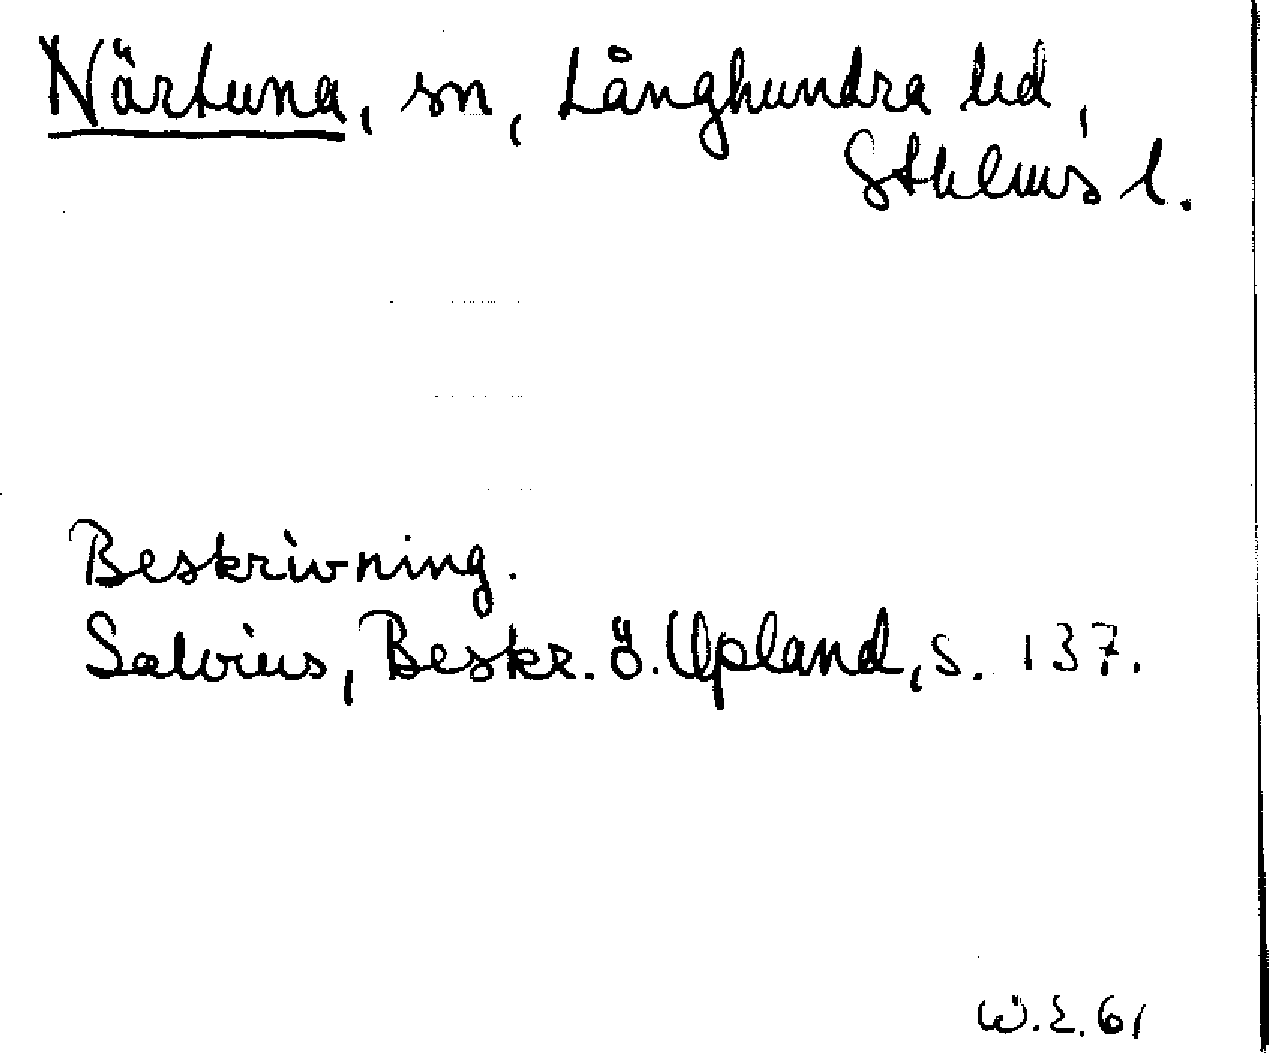 Närtuna, sn, Långhundra hd,
Sthlms l.
Beskrivning.
Salvius, Beskr. ö. Upland, s. 137.
W.E. 61